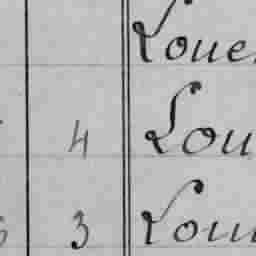 Loue
4 Lou
3 Lou